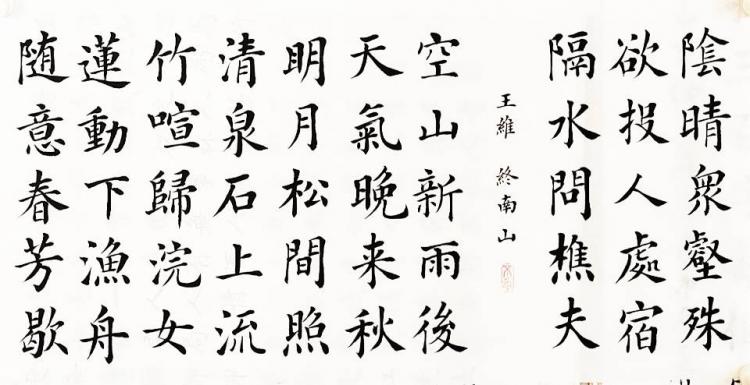 陰晴衆壑殊
欲投人處宿
隔水問樵夫
王維 終南山
空山新雨後
天氣晚来秋
明月松間照
清泉石上流
竹喧歸浣女
蓮動下漁舟
随意春芳歇